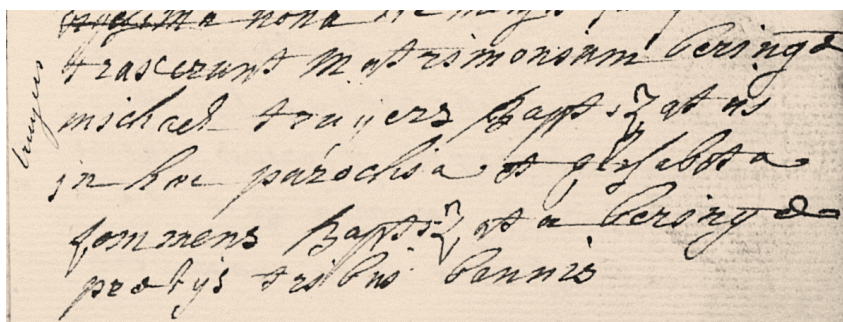 nona
traxerunt matrimonium beringe
michael truijers baptizatus
in hac parochia et elisabeta
sommens baptizata beringe
protijs tribus bannis